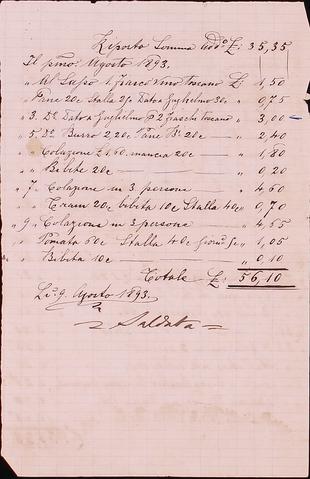 Riporto Somma addo £: 35,35
Il primo: Agosto 1893.
" Al Lupo 1 fiasco Vino toscano £ 1,50
" Pane 20c Stalla 25c Dato a Guglielmo 30c " 0,75
" 3. Do Dato a Guglielmo P 2 fiaschi toscano " 3,00
" 5. Do Burro 2,20c Pane Bo 20c — " 2,40
" Colazione £ 1,60. mancia 20c — " 1,80
" Bibite 20c — " 0,20
" 7. Colazione in 3 persone — " 4,60
" Tram 20c bibita 10c Stalla 40c " 0,70
" 9 Colazione in 3 persone — " 4,65
" Pomata 60c Stalla 40c Giorn. 5c " 1,05
" Bibita 10c — " 0,10
Totale £: 56,10
Li 9. Agosto 1893.
Saldata